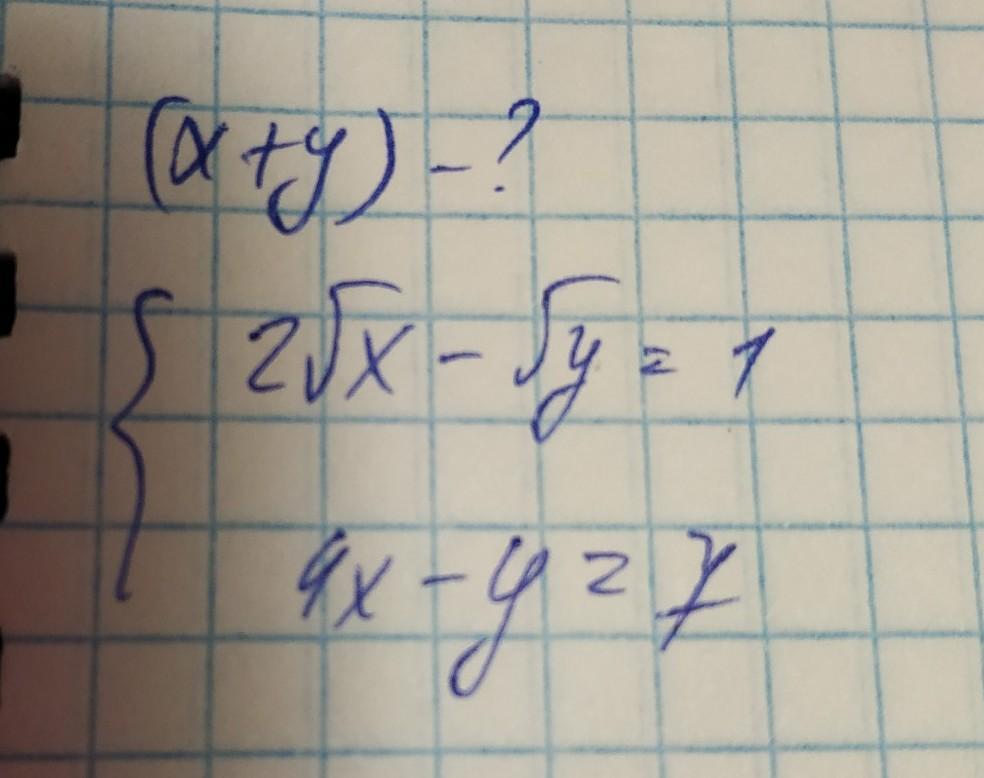 (x+y) - ?
2√x - √y = 1
4x - y = 7